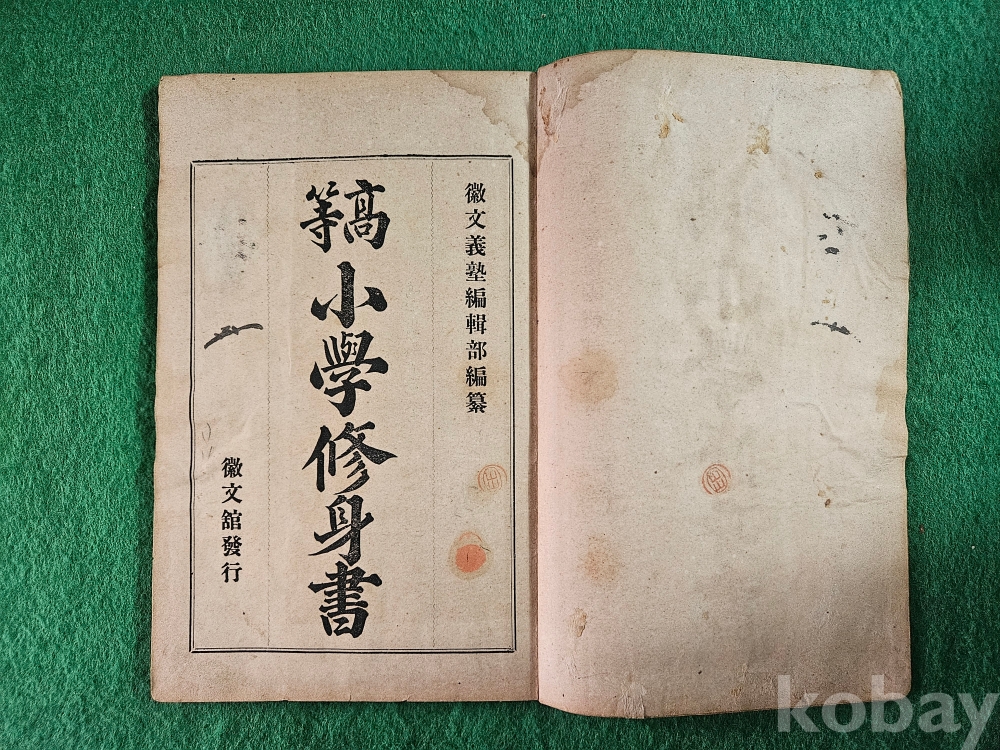 徽文義塾編輯部編纂
高等小學修身書
徽文館發行
kobay